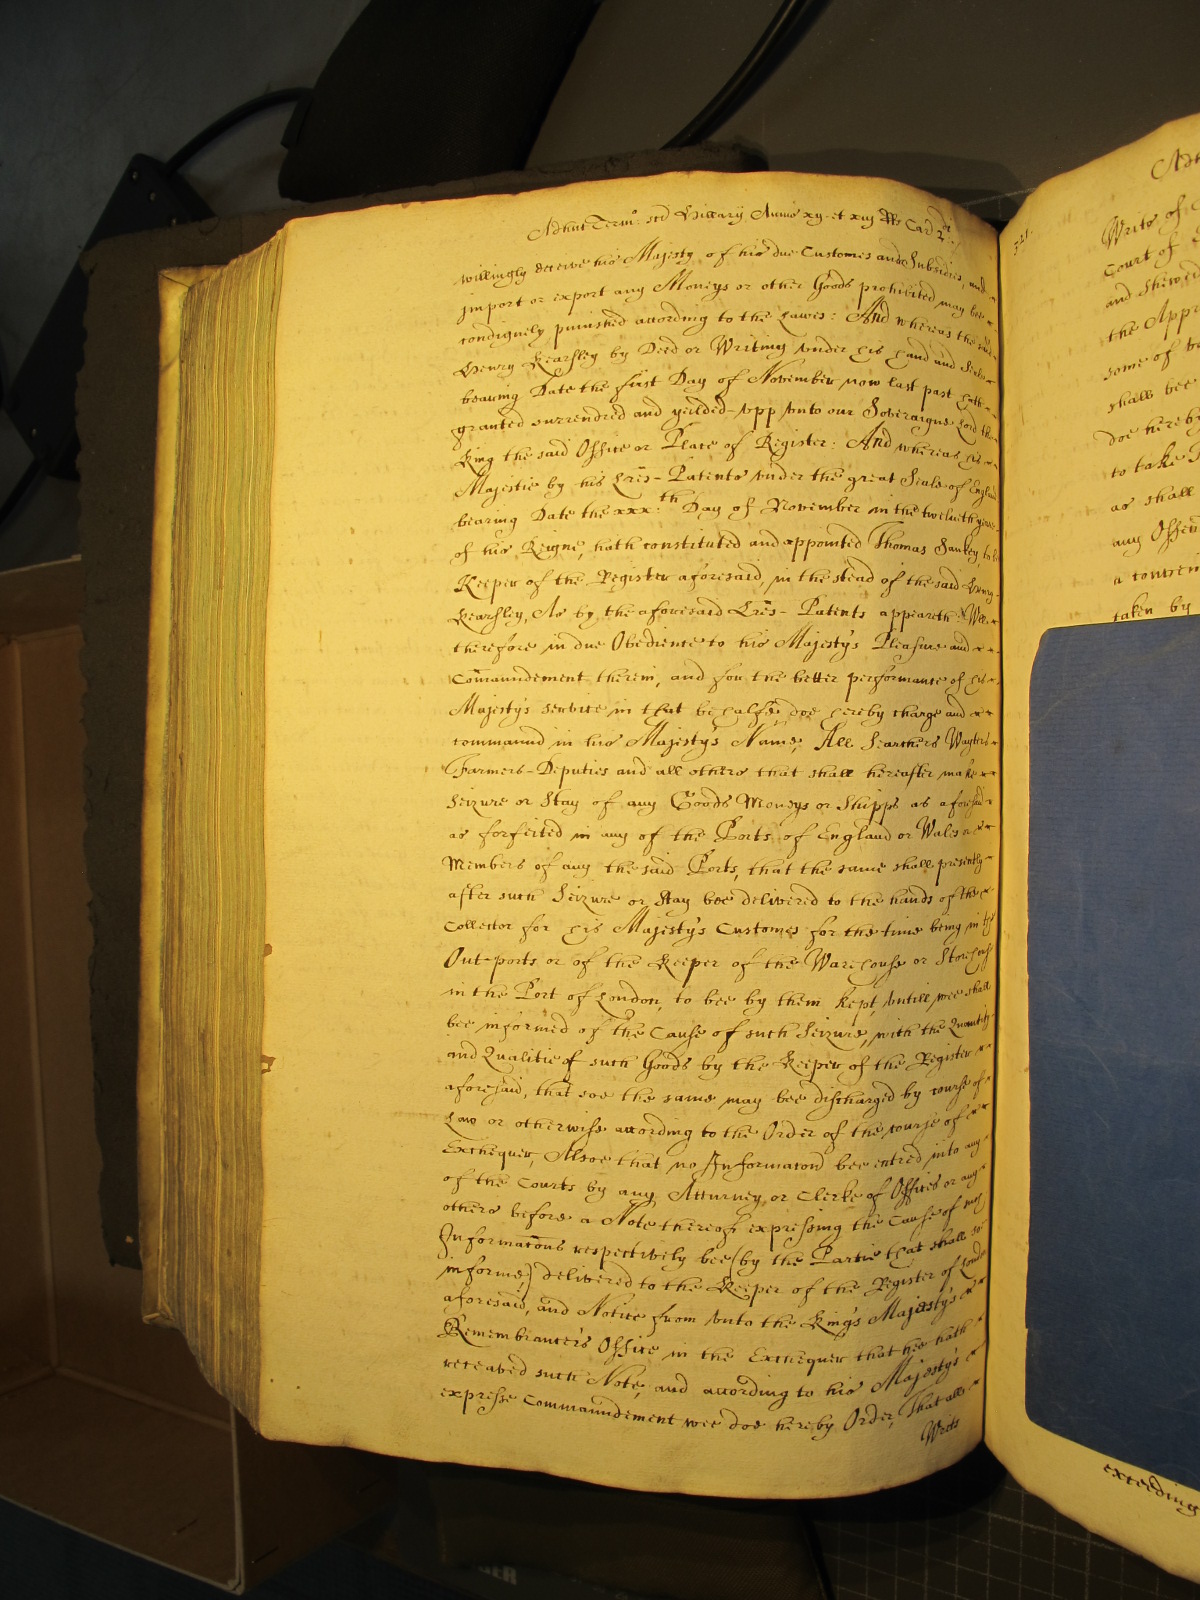 Adhuc Term: scd Hillary Anno xij et xiij RRs Car 2di:
willingly deceive his Majesty of his due Customes and Subsidies, and
import or export any Moneys or other Goods prohibited may bee
condignely punished according to the Lawes: And whereas the said
Henry Kearsley by Deed or Writing under his hand and Seale
bearing Date the first Day of November now last past hath
granted surrendred and yeilded upp unto our Soveraigne Lord the
King the said Office or Place of Register: And whereas his
Majestie by his Lres Patents under the great Seale of England
bearing Date the xxx:th Day of November in the twelveth yeare
of his Reigne, hath constituted and appointed Thomas Sankey, to be
Keeper of the Register aforesaid, in the stead of the said Henry
Kearsley, As by the aforesaid Lres Patents appeareth: Wee
therefore in due Obedience to his Majesty's Pleasure and
Comaundement therein, and for the better performance of his
Majesty's service in that behalfe, doe hereby charge and
command in his Majesty's Name, All Searchers Wayters
Farmers-Deputies and all others that shall hereafter make
Seizure or Stay of any Goods Moneys or Shipps as aforesaid
as forfeited in any of the Ports of England or Wales or
Members of any the said Ports, that the same shall presently
after such Seizure or Stay bee delivered to the hands of the
Collector for his Majesty's Customes for the time being in the
Out-ports or of the Keeper of the Warehouse or Storehouse
in the Port of London, to bee by them kept, untill wee shall
bee informed of the Cause of such Seizure, with the Quantity
and Qualitie of such Goods by the Keeper of the Register
aforesaid, that soe the same may bee discharged by course of
Law or otherwise according to the Order of the course of
Exchequer, Alsoe that no Informacon bee entred into any
of the Courts by any Atturney or Clerke of Offices or any
others before a Note thereof expressing the Cause of such
Informacons respectively bee (by the Partie that shall so
informe,) delivered to the Keeper of the Register of London
aforesaid, and Notice from unto the King's Majesty's
Remembrancer's Office in the Exchequer that hee hath
received such Note, and according to his Majesty's
expresse Commaundement wee doe hereby Order, That all
Writs
321.
Writs of
Court of
and shewed
the Appr
some of
shall bee
doe hereby
to take
as shall
any Offen
taken by
exceeding